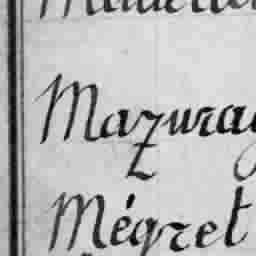 Mazurag
Mégret